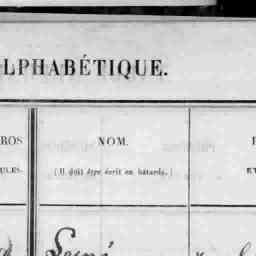 LPHABÉTIQUE.
ROS
NOM.
ULES.
( Il doit être écrit en bâtarde. )
ET